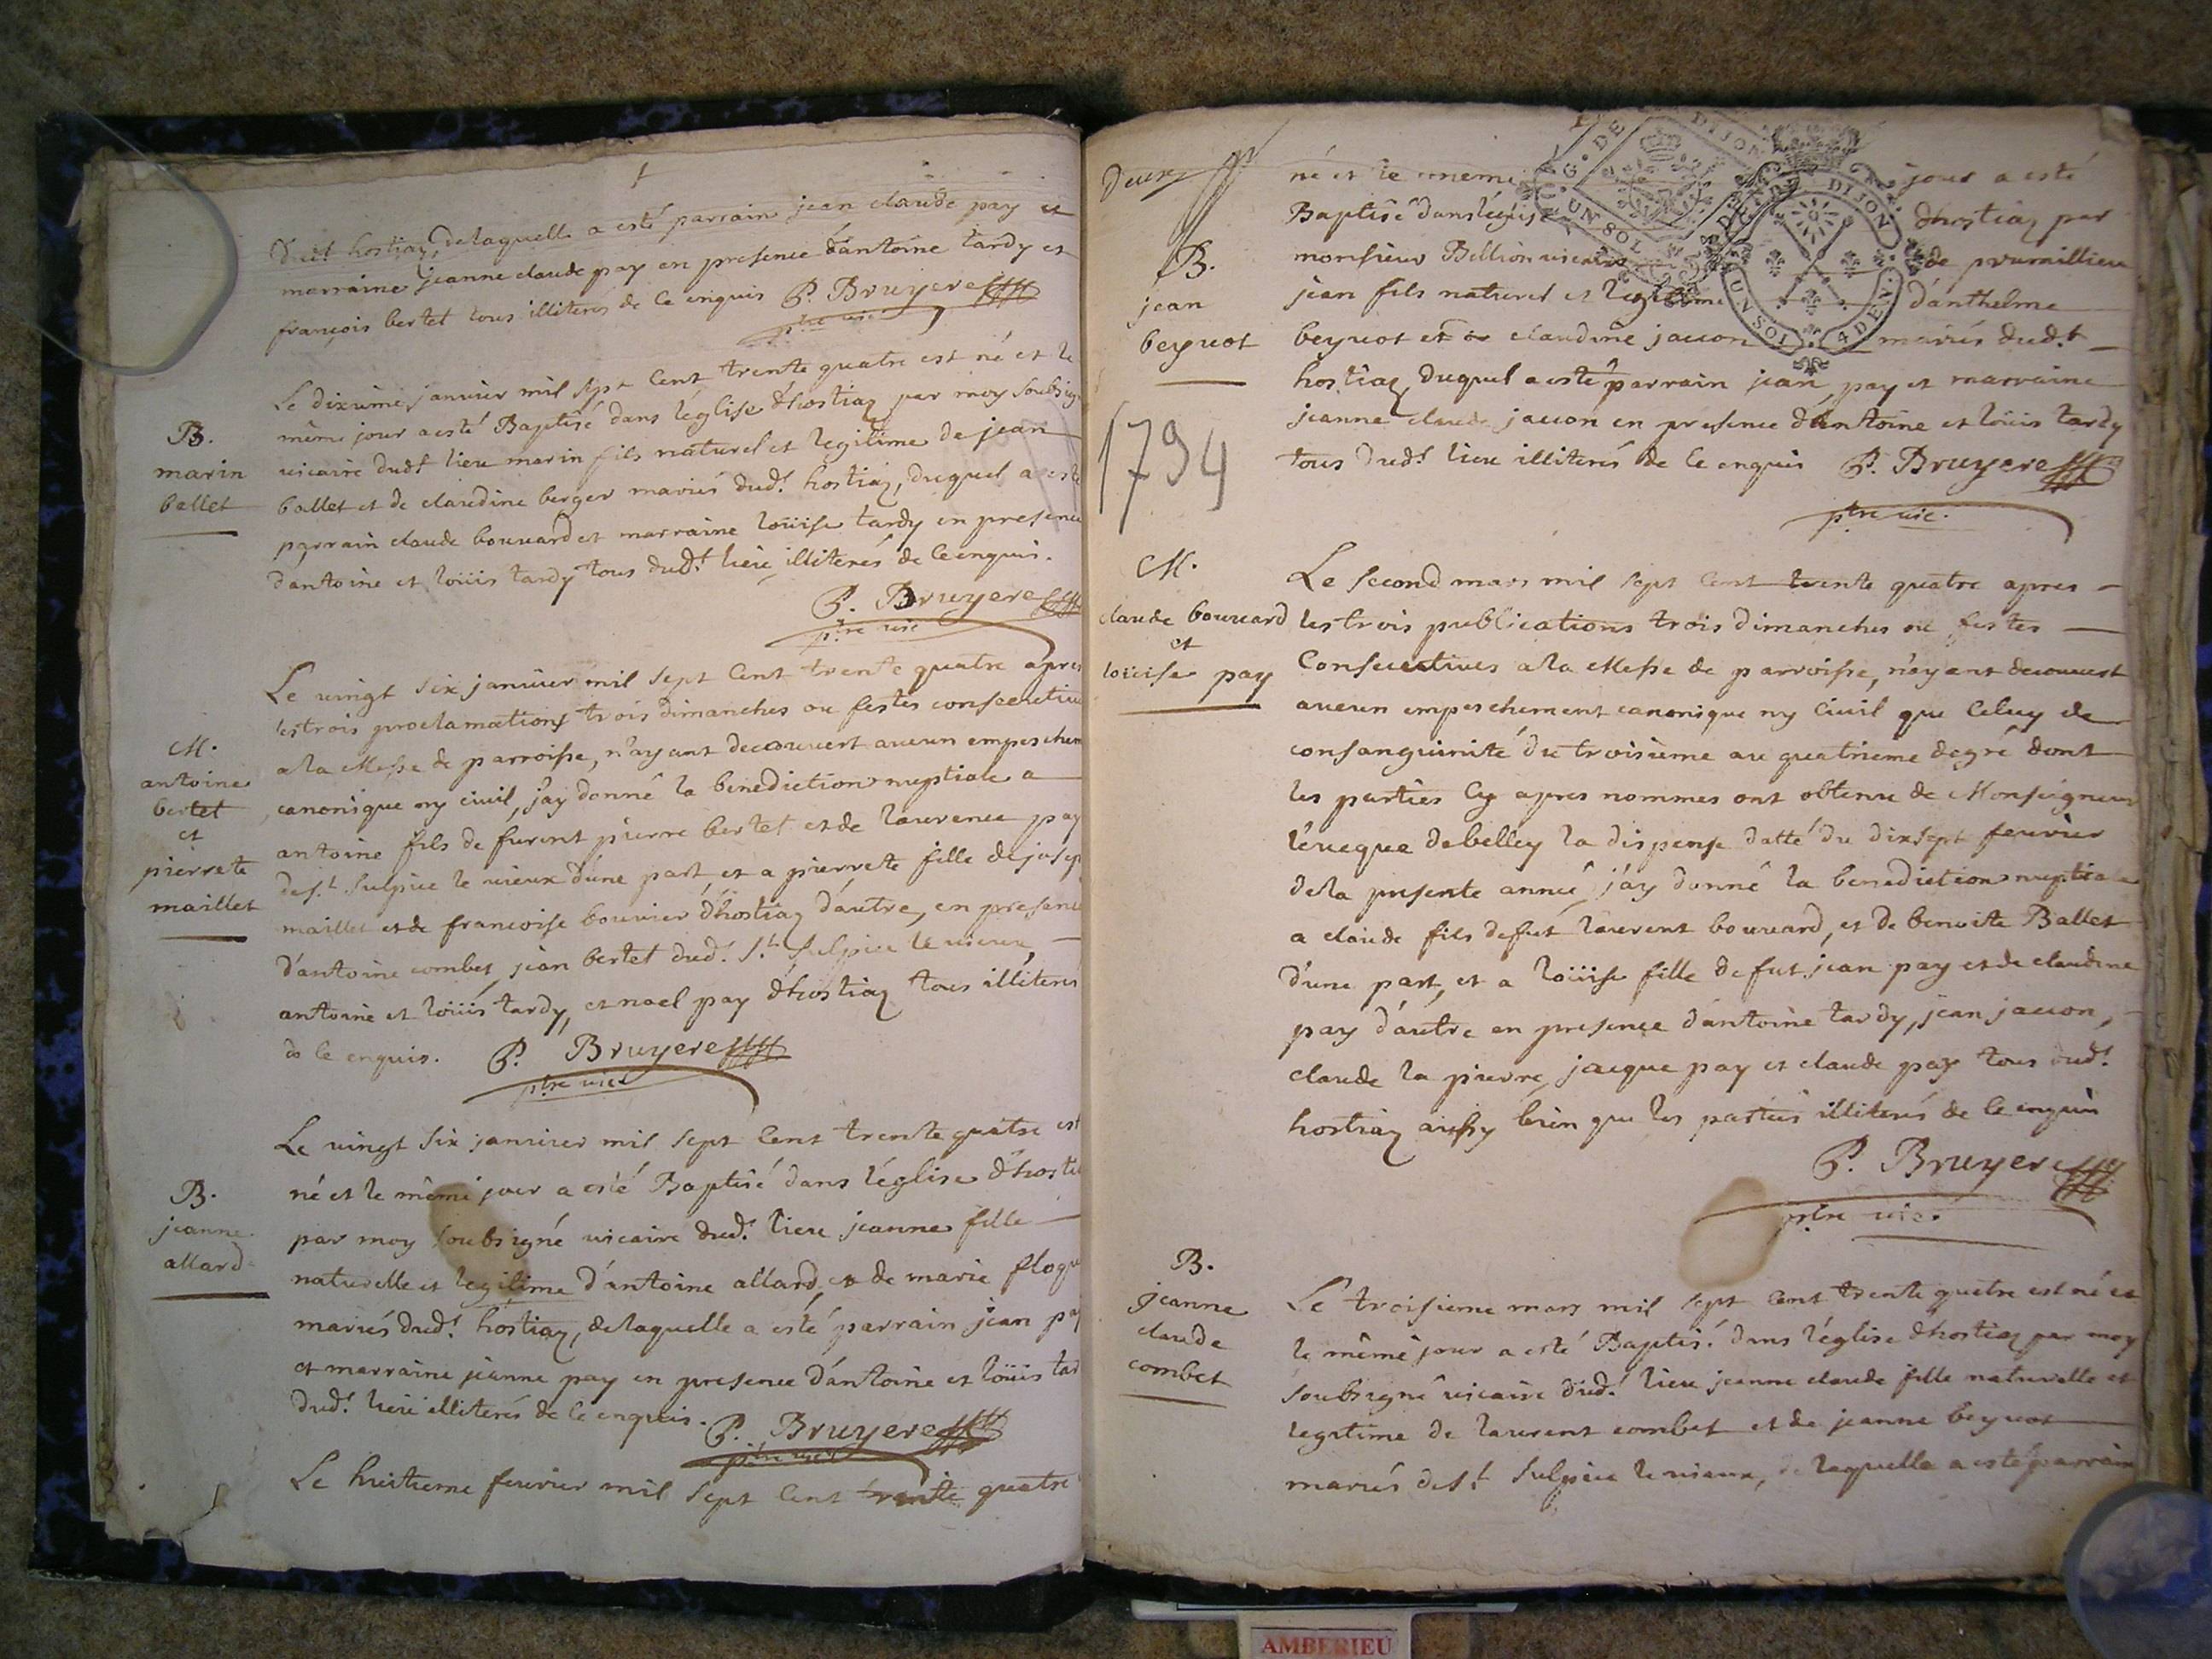 dud.t hostiaz, delaquelle a esté parrain jean claude pay et
marraine jeanne claude pay en presence d'antoine tardy et
françois bertet tous illiterés de ce enquis P. Bruyere
ptre vic
B.
marin
ballet
Le dixieme janvier mil sept cent trente quatre est né et le
même jour a esté Baptisé dans l'église d'hostiaz par moy soubsig
vicaire dud.t lieu marin fils naturel et legitime de jean
ballet et de claudine berger mariés dud.t hostiaz, duquel a esté
parrain claude bouvard et marraine loüise tardy en presence
d'antoine et loüis tardy tous dud.t lieu illiterés de ce enquis.
P. Bruyere
ptre vic
M.
antoine
bertet
et
pierrete
maillet
Le vingt six janvier mil sept cent trente quatre apres
les trois proclamations trois dimanches ou festes consecutive
a la Messe de parroisse, n'ayant decouvert aucun empeschem
canonique ny civil, j'ay donné la benediction nuptiale a
antoine fils de furent pierre bertet et de laurence pay
de s.t sulpice le vieux d'une part et a pierrete fille de josep
maillet et de francoise bouvier d'hostiaz d'autre, en presence
d'antoine combet, jean bertet dud.t s.t sulpice le vieux
antoine et loüis tardy, et noel pay d'hostiaz tous illiterés
de ce enquis. P. Bruyere
ptre vic
B.
jeanne
allard
Le vingt six janvier mil sept cent trente quatre est
né et le même jour a esté Baptisé dans l'église d'hosti
par moy soubsigné vicaire dud.t lieu jeanne fille
naturelle et legitime d'antoine allard et de marie floqu
mariés dud.t hostiaz, delaquelle a esté parrain jean pay
et marraine jeanne pay en presence d'antoine et loüis tar
dud.t lieu illiterés de ce enquis. P. Bruyere
ptre vic
Le huitieme fevrier mil sept cent trente quatre
deux
né et le meme jour a esté
Baptisé dans l'églis d'hostiaz par
monsieur Bellion vicaire de prumillieu
jean fils naturel et legitime d'anthelme
beyvot et de claudine jacson mariés dud.t
hostiaz, duquel a esté parrain jean pay et marraine
jeanne claude jacson en presence d'antoine et loüis tardy
tous dud.t lieu illiterés de ce enquis P. Bruyere
ptre vic.
G. DE DIJON
UN SOL
G. DE DIJON
UN SOL 4 DEN.
B.
jean
beyvot
1734
M.
claude bouvard
et
loüise pay
Le second mars mil sept cent trente quatre apres
les trois publications trois dimanches ou festes
Consecutives a la Messe de parroisse, n'ayant decouvert
aucun empeschement canonique ny Civil que Celuy de
consanguinité du troisieme au quatrieme degré dont
les parties Cy apres nommes ont obtenu de Monseigneur
l'évêque de belley la dispense datté du dixsept fevrier
de la presente année j'ay donné la benediction nuptiale
a claude fils de fut laurent bouvard, et de benoite Ballet
d'une part, et a loüise fille de fut jean pay et de claudine
pay d'autre en presence d'antoine tardy, jean jacson,
claude la pierre, jacque pay et claude pay tous dud.t
hostiaz aussy bien que les parties illiterés de ce enquis
P. Bruyere
ptre vic
B.
jeanne
claude
combet
Le troisieme mars mil sept cent trente quatre est né et
le même jour a esté Baptisé dans l'église d'hostiaz par moy
soubsigné vicaire dud.t lieu jeanne claude fille naturelle et
legitime de laurent combet et de jeanne beyvot
mariés de s.t sulpice le vieux, de laquelle a esté parrain
AMBERIEU